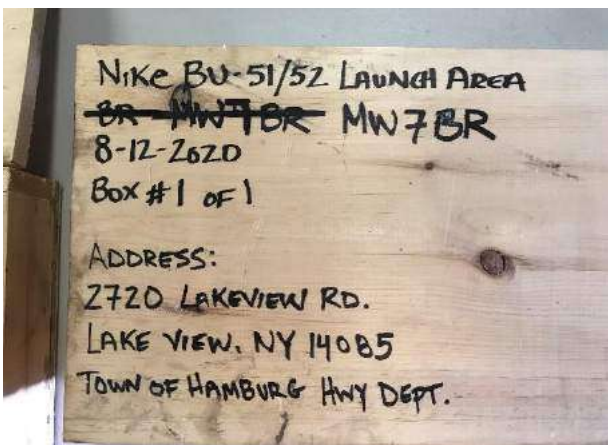 NIKE BU-51/52 LAUNCH AREA
BR-MW7BR MW7BR
8-12-2020
BOX #1 OF 1
ADDRESS:
2720 LAKEVIEW RD.
LAKE VIEW, NY 14085
TOWN OF HAMBURG HWY DEPT.